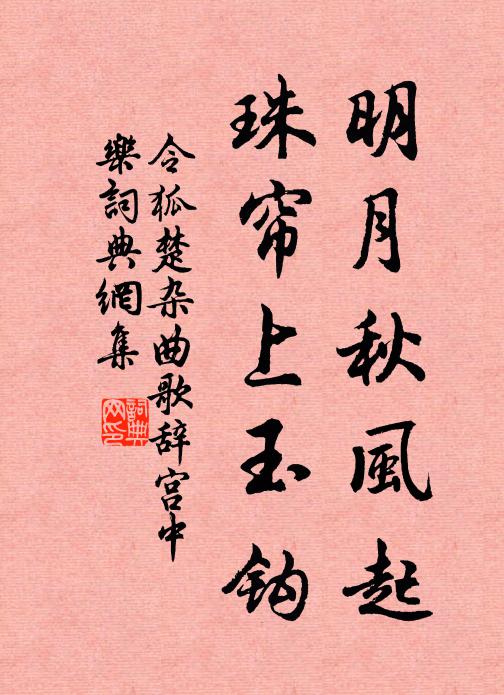 明月秋風起
珠帘上玉钩
令狐楚杂曲歌辞宫中
樂詞典網集
詞典
网印